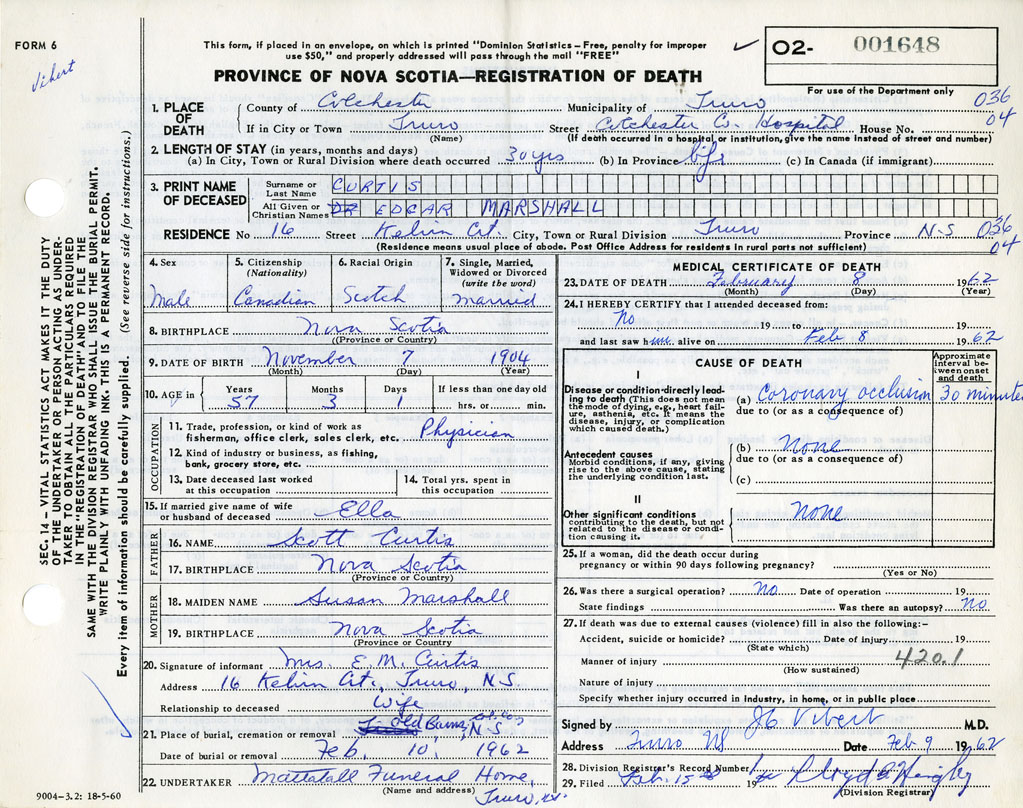 FORM 6
Vibert
This form, if placed in an envelope, on which is printed "Dominion Statistics – Free, penalty for improper
use $50," and properly addressed will pass through the mail "FREE"
✓ 02- 001648
For use of the Department only
PROVINCE OF NOVA SCOTIA—REGISTRATION OF DEATH
SEC. 14 – VITAL STATISTICS ACT MAKES IT THE DUTY
OF THE UNDERTAKER OR PERSON ACTING AS UNDER-
TAKER TO OBTAIN ALL THE PARTICULARS REQUIRED
IN THE "REGISTRATION OF DEATH" AND TO FILE THE
SAME WITH THE DIVISION REGISTRAR WHO SHALL ISSUE THE BURIAL PERMIT.
WRITE PLAINLY WITH UNFADING INK. THIS IS A PERMANENT RECORD.
Every item of information should be carefully supplied. (See reverse side for instructions.)
1. PLACE OF DEATH
County of Colchester Municipality of Truro 036
If in City or Town Truro Street Colchester Co. Hospital House No. 04
(Name) (If death occurred in a hospital or institution, give the name instead of street and number)
2. LENGTH OF STAY (in years, months and days)
(a) In City, Town or Rural Division where death occurred 30 yrs (b) In Province life (c) In Canada (if immigrant)
3. PRINT NAME OF DECEASED
Surname or Last Name CURTIS
All Given or Christian Names DR EDGAR MARSHALL
RESIDENCE No. 16 Street Kelvin Crt. City, Town or Rural Division Truro Province N-S 036
(Residence means usual place of abode. Post Office Address for residents in rural parts not sufficient) 04
4. Sex 5. Citizenship (Nationality) 6. Racial Origin 7. Single, Married, Widowed or Divorced (write the word)
Male Canadian Scotch married
8. BIRTHPLACE Nova Scotia
(Province or Country)
9. DATE OF BIRTH November 7 1904
(Month) (Day) (Year)
10. AGE in Years Months Days If less than one day old
57 3 1 hrs. or min.
OCCUPATION
11. Trade, profession, or kind of work as
fisherman, office clerk, sales clerk, etc. Physician
12. Kind of industry or business, as fishing,
bank, grocery store, etc.
13. Date deceased last worked
at this occupation
14. Total yrs. spent in
this occupation
15. If married give name of wife
or husband of deceased Ella
FATHER
16. NAME Scott Curtis
17. BIRTHPLACE Nova Scotia
(Province or Country)
MOTHER
18. MAIDEN NAME Susan Marshall
19. BIRTHPLACE Nova Scotia
(Province or Country)
20. Signature of informant Mrs. E. M. Curtis
Address 16 Kelvin Crt., Truro, N.S.
Relationship to deceased Wife
21. Place of burial, cremation or removal Old Barns, Col. Co., N.S
Date of burial or removal Feb. 10, 1962
22. UNDERTAKER Mattatall Funeral Home,
(Name and address) Truro, N.S.
9004-3.2: 18-5-60
MEDICAL CERTIFICATE OF DEATH
23. DATE OF DEATH February 8 1962
(Month) (Day) (Year)
24. I HEREBY CERTIFY that I attended deceased from:
No 19 to 19
and last saw him alive on Feb 8 1962
CAUSE OF DEATH
Approximate interval between onset and death
I
Disease or condition directly lead-
ing to death (This does not mean
the mode of dying, e.g., heart fail-
ure, asthenia, etc. It means the
disease, injury, or complication
which caused death.)
(a) Coronary occlusion 30 minutes
due to (or as a consequence of)
Antecedent causes
Morbid conditions, if any, giving
rise to the above cause, stating
the underlying condition last.
(b) None
due to (or as a consequence of)
(c)
II
Other significant conditions
contributing to the death, but not
related to the disease or condi-
tion causing it.
None
25. If a woman, did the death occur during
pregnancy or within 90 days following pregnancy?
(Yes or No)
26. Was there a surgical operation? No. Date of operation 19
State findings Was there an autopsy? No
27. If death was due to external causes (violence) fill in also the following:-
Accident, suicide or homicide? Date of injury 19
(State which)
Manner of injury 420.1
(How sustained)
Nature of injury
Specify whether injury occurred in industry, in home, or in public place
Signed by Vibert M.D.
Address Truro NS Date Feb 9 1962
28. Division Registrar's Record Number
29. Filed Feb. 15 19
(Division Registrar)